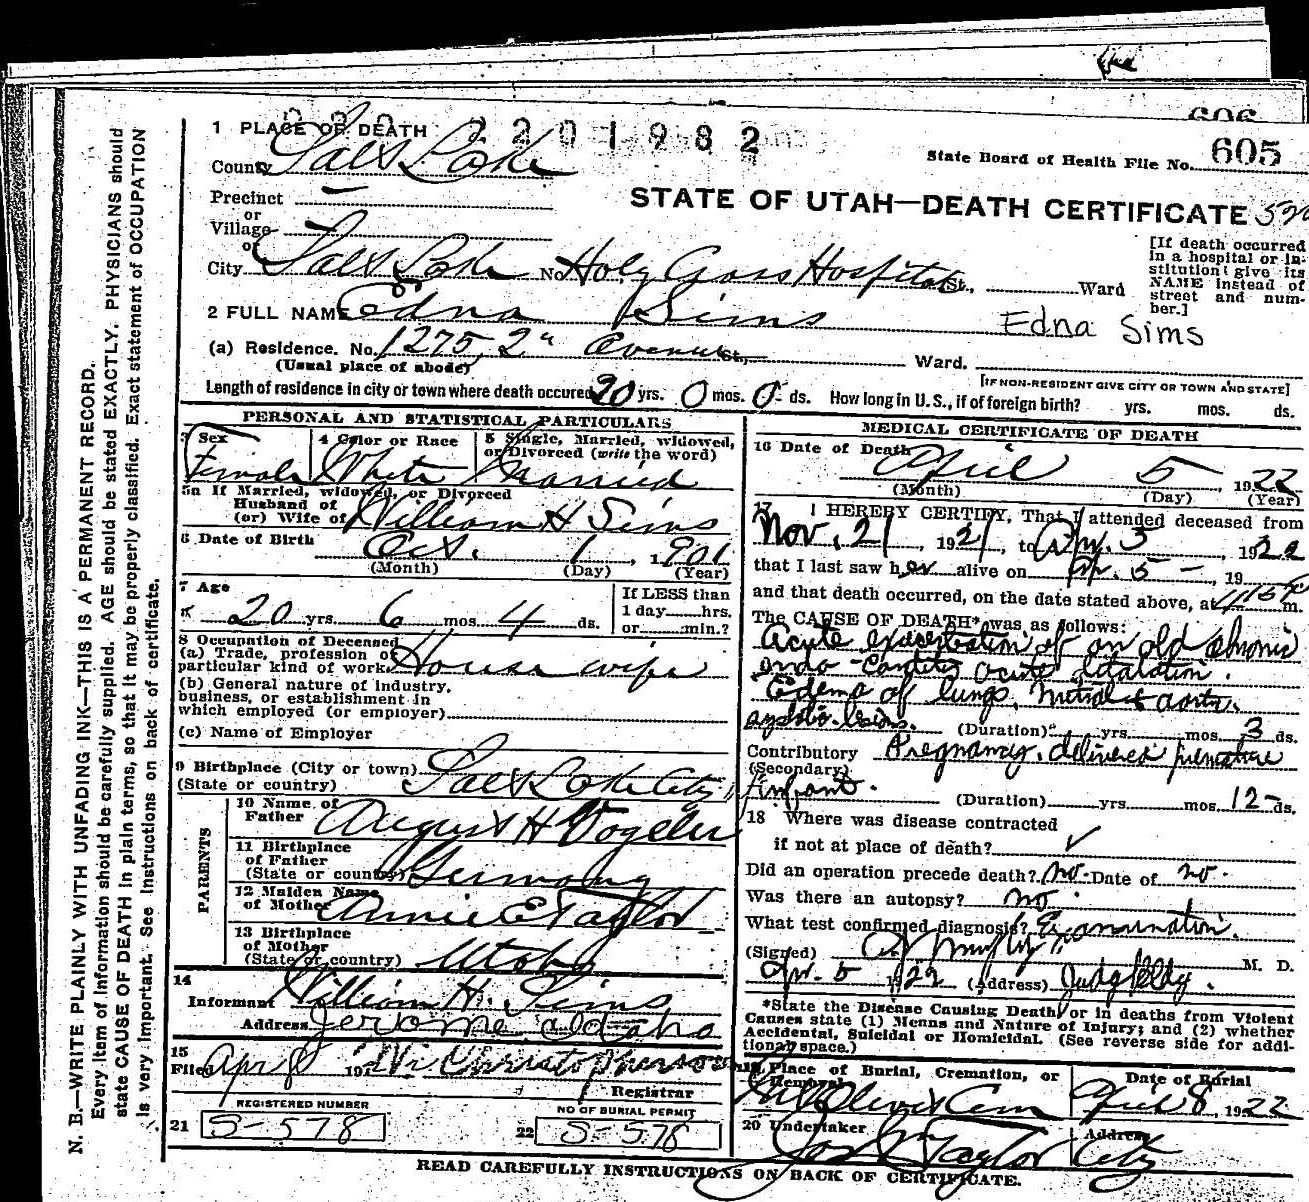 606
1 PLACE OF DEATH 2201982
State Board of Health File No. 605
County Salt Lake
STATE OF UTAH—DEATH CERTIFICATE
Precinct —
or
Village
or
City Salt Lake No. Holy Cross Hospital St., Ward
[If death occurred
in a hospital or in-
stitution give its
NAME instead of
street and num-
ber.]
2 FULL NAME Edna Sims
Edna Sims
(a) Residence. No. 1275, 2" Avenue St., Ward.
(Usual place of abode)
[IF NON-RESIDENT GIVE CITY OR TOWN AND STATE]
Length of residence in city or town where death occured 20 yrs. 0 mos. 0 ds. How long in U. S., if of foreign birth? yrs. mos. ds.
PERSONAL AND STATISTICAL PARTICULARS
3 Sex
Female
4 Color or Race
White
5 Single, Married, widowed,
or Divorced (write the word)
Married
5a If Married, widowed, or Divorced
Husband of
(or) Wife of William H Sims
6 Date of Birth Oct. 1, 1901
(Month) (Day) (Year)
7 Age
20 yrs. 6 mos. 4 ds.
If LESS than
1 day hrs.
or min.?
8 Occupation of Deceased
(a) Trade, profession or
particular kind of work House wife
(b) General nature of industry,
business, or establishment in
which employed (or employer)
(c) Name of Employer
9 Birthplace (City or town) Salt Lake City
(State or country)
PARENTS
10 Name of
Father August H Vogeler
11 Birthplace
of Father
(State or country) Germany
12 Maiden Name
of Mother Annie E Taylor
13 Birthplace
of Mother
(State or country) Utah
14
Informant William H. Sims
Address Jerome Idaho
15
Filed Apr 8 19
Registrar
REGISTERED NUMBER
21 S-578
NO OF BURIAL PERMIT
22 S-578
MEDICAL CERTIFICATE OF DEATH
16 Date of Death April 5, 1922
(Month) (Day) (Year)
17 I HEREBY CERTIFY, That I attended deceased from
Nov. 21, 1921, to Apr. 5, 1922
that I last saw her alive on Apr. 5 —, 19
and that death occurred, on the date stated above, at m.
The CAUSE OF DEATH* was as follows:
Acute of an old chronic
endo-Carditis acute dilatation.
Edema of lungs. Mitral & aortic
(Duration) yrs. mos. 3 ds.
Contributory Pregnancy. delivered premature
(Secondary)
Infant. (Duration) yrs. mos. 12 ds.
18 Where was disease contracted
if not at place of death? ✓
Did an operation precede death? no. Date of no.
Was there an autopsy? no
What test confirmed diagnosis? Examination.
(Signed) M. D.
Apr. 5 1922 (Address) Judg Bldg.
*State the Disease Causing Death, or in deaths from Violent
Causes state (1) Means and Nature of Injury; and (2) whether
Accidental, Suicidal or Homicidal. (See reverse side for addi-
tional space.)
19 Place of Burial, Cremation, or
Removal
Mt Olivet Cem
Date of Burial
April 8, 1922
20 Undertaker
Jos Wm Taylor
Address
City
READ CAREFULLY INSTRUCTIONS ON BACK OF CERTIFICATE.
N. B.—WRITE PLAINLY WITH UNFADING INK—THIS IS A PERMANENT RECORD.
Every item of information should be carefully supplied. AGE should be stated EXACTLY. PHYSICIANS should
state CAUSE OF DEATH in plain terms, so that it may be properly classified. Exact statement of OCCUPATION
is very important. See instructions on back of certificate.